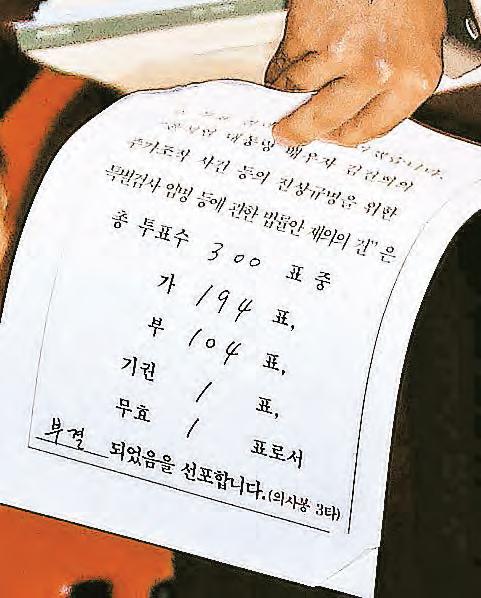 대통령 배우자 김건희의
주가조작 사건 등의 진상규명을 위한
특별검사 임명 등에 관한 법률안 재의의 건"은
총 투표수 300 표 중
가 194 표,
부 104 표,
기권 1 표,
무효 1 표로서
부결 되었음을 선포합니다.(의사봉 3타)